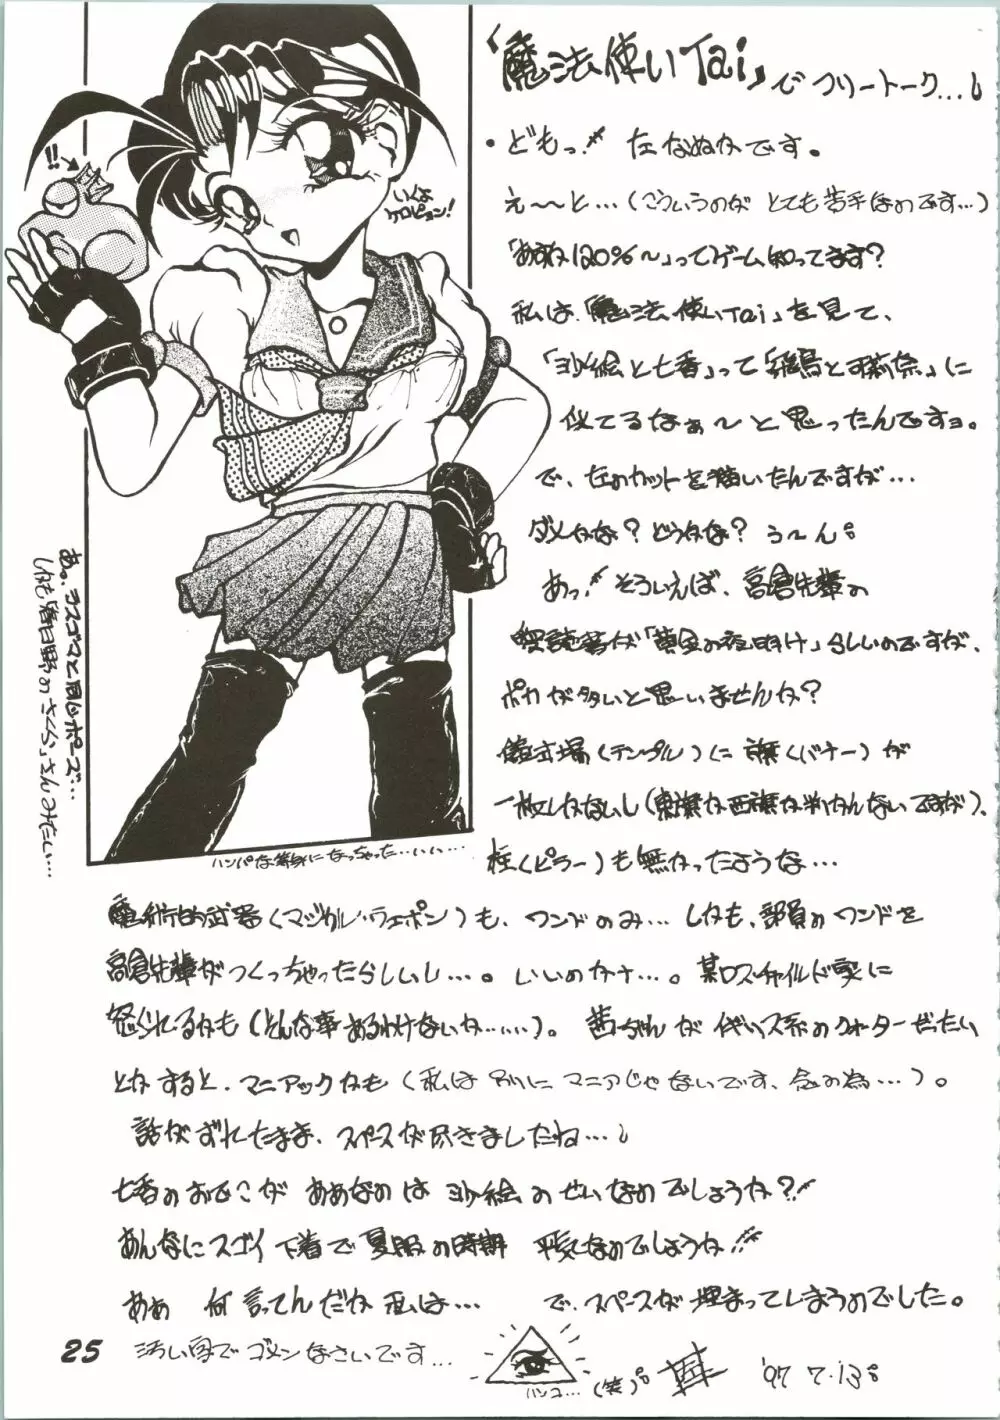 「魔法使いTai」でフリートーク…!
・どもっ!! 左なぬかです。
え〜と…(こういうのが とても苦手なのです…)
「あすか120%〜」ってゲーム知ってます?
私は、「魔法使いTai」を見て、
「沙絵と七香」って「飛鳥と可莉奈」に
似てるなぁ〜と思ったんですョ。
で、左のカットを描いたんですが…
ダメかな?どうかな? う〜ん。
あっ!そういえば、高倉先輩の
聖説書が「黄金の夜明け」らしいのですが、
ポカが多いと思いませんか?
儀式場(テンプル)に 旗(バナー)が
一枚しかないし(東旗か西旗か判かんないですが)、
柱(ピラー)も無かったような…
魔術的武器(マジカル・ウェポン)も、ワンドのみ… しかも、部員のワンドを
高倉先輩がつくっちゃったらしいし…。いいのかナ…。某ロスチャイルド家に
怒られるかも(そんな事あるわけないか……)。 茜ちゃんが イギリス系のクォーターだったい
とかすると、マニアックかも(私は別にマニアじゃないです、念の為…)。
話がずれたまま、スペースが尽きましたね…!
七香のおでこが ああなのは 沙絵のせいなのでしょうか?!
あんなにスゴイ下着で夏服の時期 平気なのでしょうか!!
ああ 何言ってんだか私は… で、スペースが埋まってしまうのでした。
汚い字でゴメンなさいです…
ハンコ…
(笑)。
'97 7.13。
!!→
いくよ
ケロピョン!
あっ、ラスゴマと同じポーズ…
しかも「春日野のさくら」さんみたい…
ハンパな等身になっちゃった…いい…
25